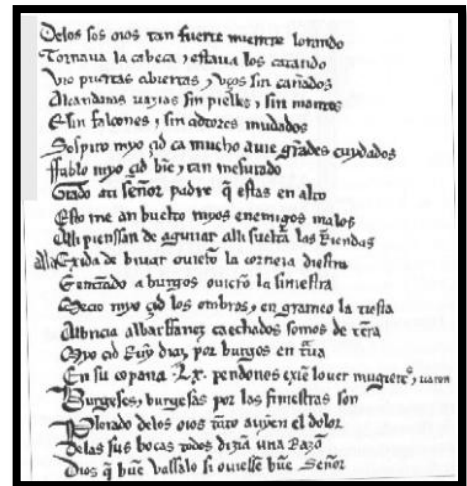 Delos sos oios tan fuerte mientre lorando
Tornaua la cabeça ⁊ estaua los catando
Vio puertas abiertas ⁊ vços sin cañados
Alcandaras uazias sin pielles ⁊ sin mantos
E sin falcones ⁊ sin adtores mudados
Sospiro myo çid ca mucho auie grãdes cuydados
Ffablo myo çid biẽ ⁊ tan mesurado
Grado ati señor padre q̃ estas en alto
Esto me an buelto myos enemigos malos
Alli pienssan de aguiiar alli sueltã las Riendas
Ala Exida de biuar ouierõ la corneia diestra
E entrãdo a burgos ouierõ la siniestra
Meçio myo çid los ombros ⁊ en grameo la tiesta
Albricia albarffanez ca echados somos de tr̃ra
Myo çid Ruy diaz por burgos en traua
En su conpaña .Lx. pendones exiẽ lo uer mugieres ⁊ uarones
Burgeses ⁊ burgesas por las finiestras son
Plorando delos oios tãto auyen el dolor
Delas sus bocas todos dizian una Razõ
Dios q̃ buẽ vassalo si ouiesse buẽ Señor